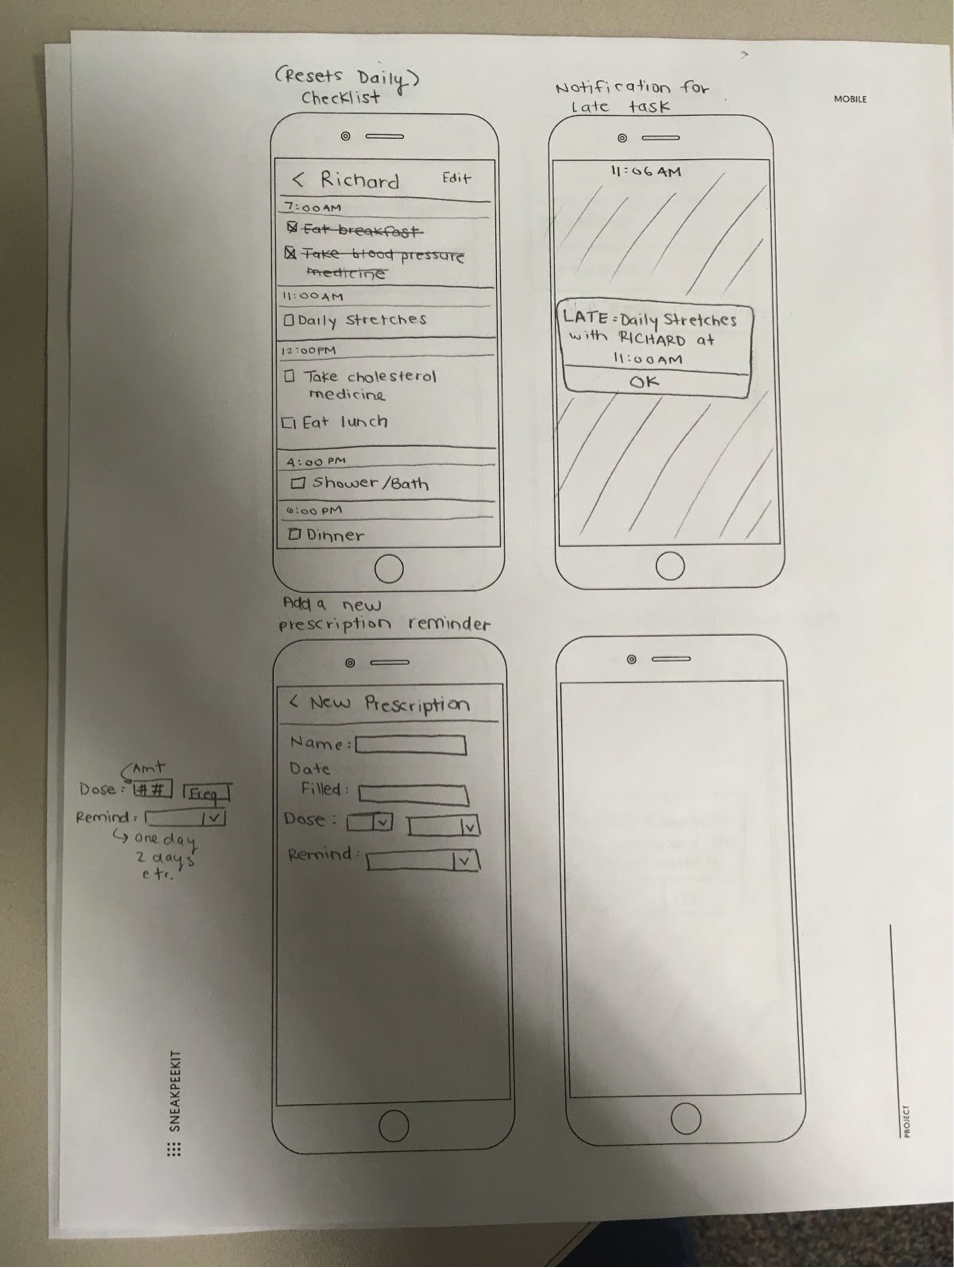 (Resets Daily)
Checklist
Notification for
Late task
MOBILE
< Richard Edit
7:00AM
Eat breakfast
Take blood pressure
medicine
11:00AM
Daily Stretches
12:00PM
Take cholesterol
medicine
Eat lunch
4:00 PM
Shower/Bath
6:00 PM
Dinner
11:06 AM
LATE: Daily Stretches
with RICHARD at
11:00AM
OK
Add a new
prescription reminder
< New Prescription
Name:
Date
Filled:
Dose:
Remind:
Amt
Dose: ## Freq
Remind:
↳ one day
2 days
etc.
SNEAKPEEKIT
PROJECT